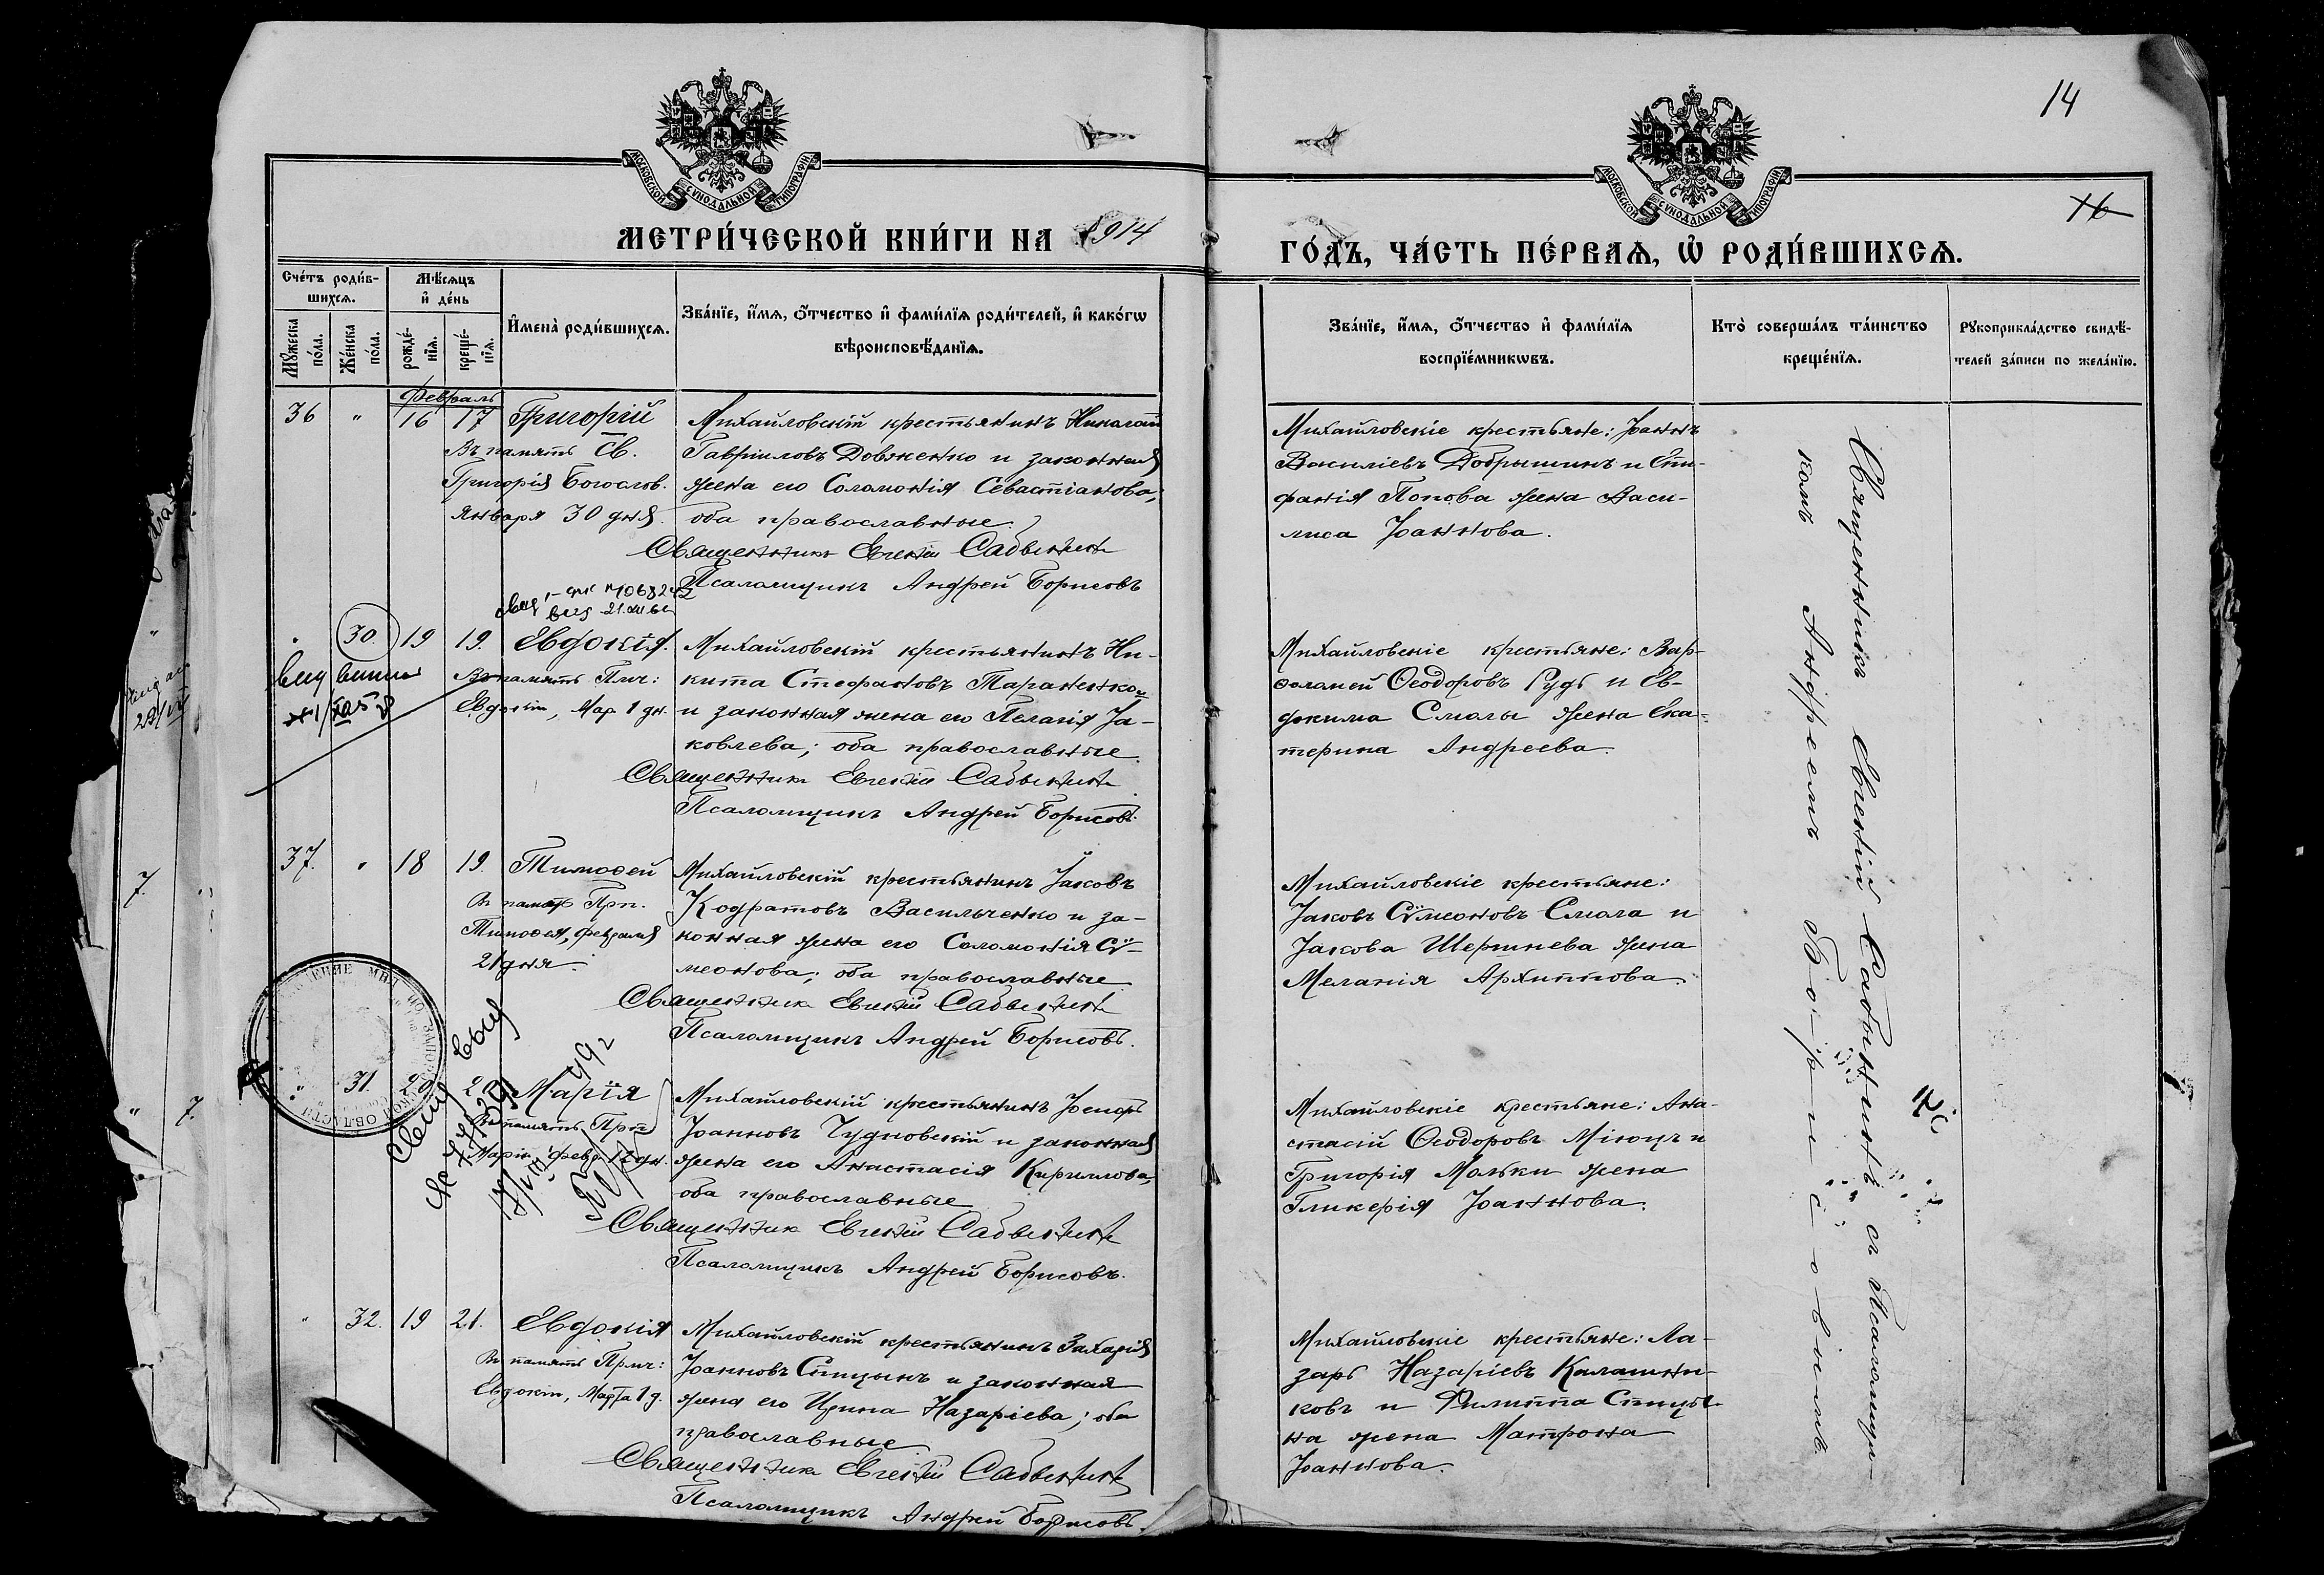 14
16
МОСКОВСКОЙ СУНОДАЛЬНОЙ ТИПОГРАФІИ
МОСКОВСКОЙ СУНОДАЛЬНОЙ ТИПОГРАФІИ
МЕТРИ́ЧЕСКОЙ КНИ́ГИ НА 1914
ГО́ДЪ, ЧА́СТЬ ПЕ́РВАѦ, Ѡ҆ РОДИ́ВШИХСѦ.
Сче́тъ роди́в-
шихсѧ.
Мѣ́сѧцъ
и҆ де́нь
Мꙋ́жеска
по́ла.
Же́нска
по́ла.
рожде́-
нїѧ.
креще́-
нїѧ.
И҆мена̀ роди́вшихсѧ.
Зва́нїе, и҆́мѧ, ѻ҆́тчество и҆ фами́лїѧ роди́телей, и҆ како́гѡ
вѣроисповѣ́данїѧ.
Зва́нїе, и҆́мѧ, ѻ҆́тчество и҆ фами́лїѧ
воспрїе́мникѡвъ.
Кто̀ соверша́лъ та́инство
креще́нїѧ.
Рꙋкоприкла́дство свидѣ́-
телей за́писи по жела́нїю.
Февраль
36 " 16 17 Григорій
Въ память Св.
Григорія Богослов.
Января 30 дня.
Михайловскій крестьянинъ Николай
Гавріиловъ Довженко и законная
жена его Соломонія Севастіанова;
оба православные.
Священникъ Евгеній Сабынинъ
Псаломщикъ Андрей Борисовъ
Михайловскіе крестьяне: Іоаннъ
Василіевъ Добрышинъ и Епи-
фанія Попова жена Васи-
лиса Іоаннова.
30. 19 19. Евдокія.
Въ память Пмч:
Евдокіи, Мар 1 дн.
Михайловскій крестьянинъ Ни-
кита Стефановъ Тараненко
и законная жена его Пелагія Іа-
ковлева; оба православные
Священникъ Евгеній Сабынинъ
Псаломщикъ Андрей Борисовъ.
Михайловскіе крестьяне: Вар-
ѳоломей Ѳеодоровъ Рудь и Ев-
докима Смолы жена Ека-
терина Андреева.
37. " 18 19. Тимоѳей
Въ память Прп.
Тимоѳея, Февраля
21 дня.
Михайловскій крестьянинъ Іаковъ
Кодратовъ Васильченко и за-
конная жена его Соломонія Сѵ-
меонова; оба православные
Священникъ Евгеній Сабынинъ
Псаломщикъ Андрей Борисовъ.
Михайловскіе крестьяне:
Іаковъ Сѵмеоновъ Смола и
Іакова Шершнева жена
Меланія Архиппова.
" 31. 20 20 Марія
Въ память Прп
Маріи Февр. 12 дн.
Михайловскій крестьянинъ Іосифъ
Іоанновъ Чудновскій и законная
жена его Анастасія Кириллова,
оба православные
Священникъ Евгеній Сабынинъ
Псаломщикъ Андрей Борисовъ.
Михайловскіе крестьяне: Ана-
стасій Ѳеодоровъ Міюцъ и
Григорія Мольки жена
Гликерія Іоаннова.
" 32. 19 21. Евдокія
Въ память Прмч:
Евдокіи, Марта 1 д.
Михайловскій крестьянинъ Захарія
Іоанновъ Спицынъ и законная
жена его Ирина Назаріева; оба
православные
Священникъ Евгеній Сабынинъ
Псаломщикъ Андрей Борисовъ.
Михайловскіе крестьяне: Ла-
зарь Назаріевъ Калашни-
ковъ и Филиппа Спицы-
на жена Матрона
Іоаннова.
Священникъ Евгеній Сабынинъ съ Псаломщи-
комъ Андреемъ Борисовымъ.